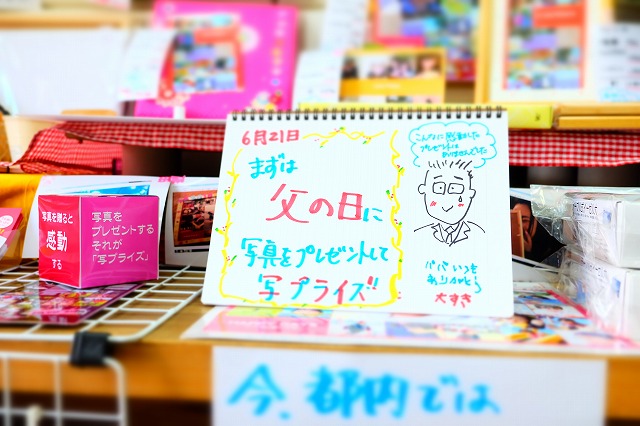 6月21日
まずは
父の日に
写真をプレゼントして
写プライズ!!
こんなに感動した
プレゼントは
ありませんでした
パパいつも
ありがとう
大すき
写真を贈ると
感動
する
写真を
プレゼントする
それが
「写プライズ」
今、都内では